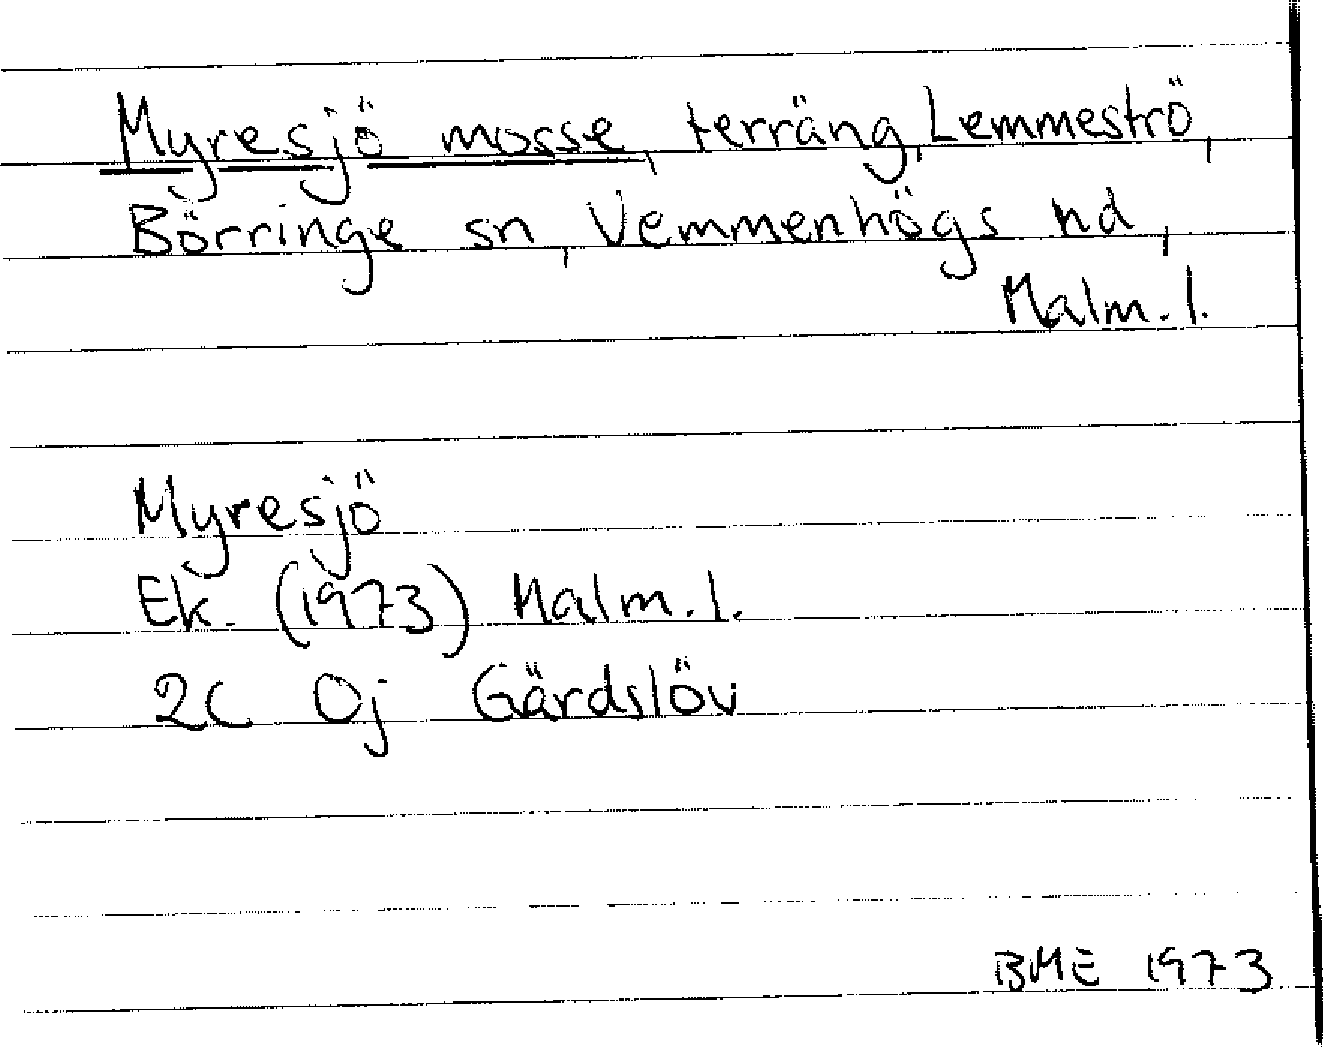 Myresjö mosse, terräng, Lemmeströ,
Börringe sn, Vemmenhögs hd,
Malm. l.
Myresjö
Ek. (1973) Malm. l.
2C 0j Gärdslöv
BME 1973